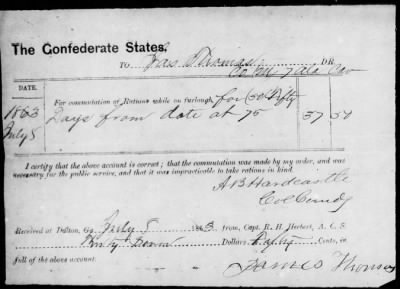 The Confederate States.
TO Jas Thomas DR.
Co. M 7 Ala Cav
DATE.
1863
July 5
For commutation of Rations while on furlough for (50) Fifty
Days from date at 75 37 50
I certify that the above account is correct; that the commutation was made by my order, and was
necessary for the public service, and that it was impracticable to take rations in kind.
A B Hardcastle
Col Comdg
Received at Dalton, Ga. July 5 1863 from, Capt. R. H. Herbert, A. C. S.
Thirty Seven Dollars Fifty Cents, in
full of the above account.
James Thomas